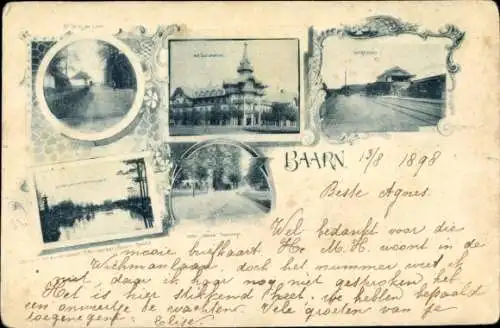 BAARN
13/8 1898
Beste Agnes.
Wel bedankt voor die
mooie briefkaart. He M. H. woont in de
Wichmanlaan, doch het nummer weet ik
niet, daar ik haar nog niet gesproken heb.
Het is hier stikkend heet. We hebben bepaald
een onweertje te wachten. Vele groeten van je
toegenegen: Elise.